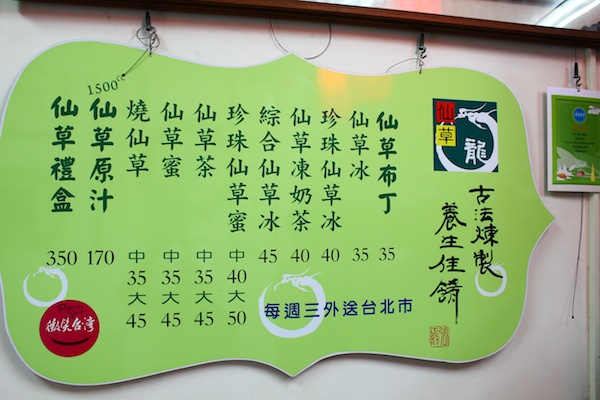 仙草
龍
古法煉製
養生佳餚
仙草布丁 35
仙草冰 35
珍珠仙草冰 40
仙草凍奶茶 40
綜合仙草冰 45
珍珠仙草蜜 中40大50
仙草茶 中35大45
仙草蜜 中35大45
燒仙草 中35大45
1500cc
仙草原汁 170
仙草禮盒 350
每週三外送台北市
微笑台灣